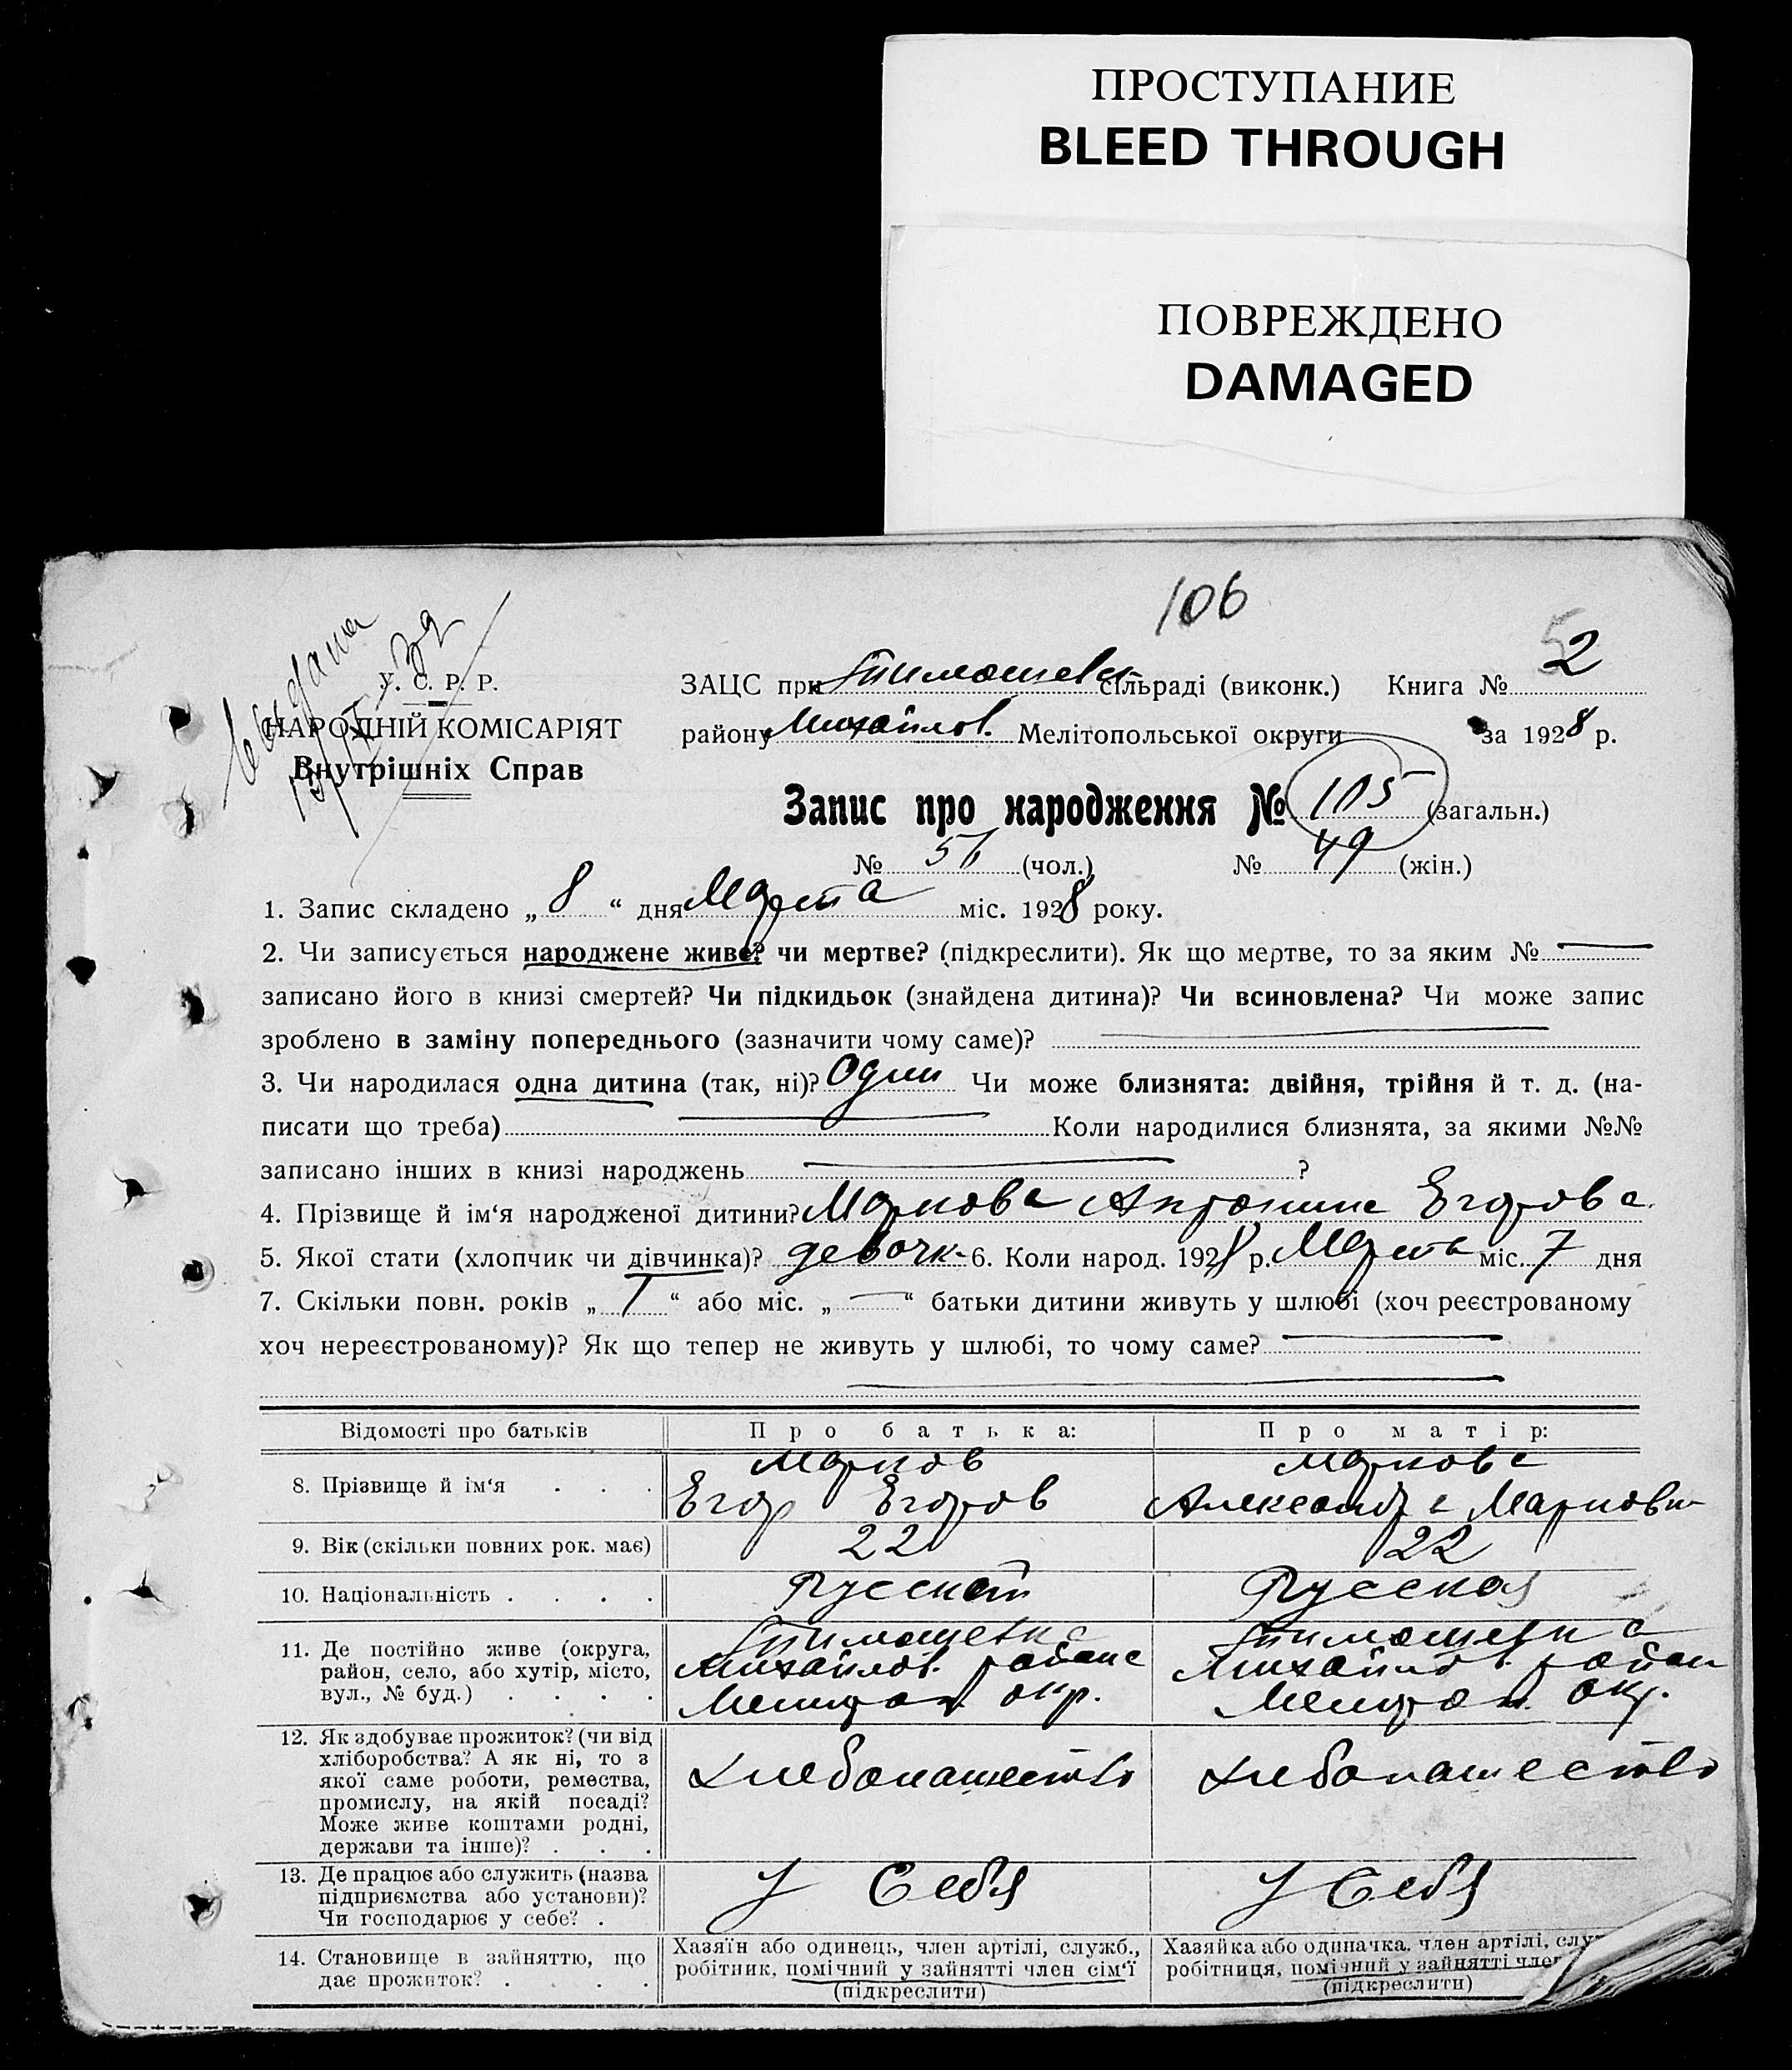 ПРОСТУПАНИЕ
BLEED THROUGH
ПОВРЕЖДЕНО
DAMAGED
106
5
У. С. Р. Р.
НАРОДНІЙ КОМІСАРІЯТ
Внутрішніх Справ
ЗАЦС при Тимошевск сільраді (виконк.) Книга № 2
району Михайлов. Мелітопольської округи за 1928 р.
Запис про народження № 105 (загальн.)
№ 56 (чол.) № 49 (жін.)
1. Запис складено „ 8 “ дня Марта міс. 1928 року.
2. Чи записується народжене живе? чи мертве? (підкреслити). Як що мертве, то за яким №
записано його в книзі смертей? Чи підкидьок (знайдена дитина)? Чи всиновлена? Чи може запис
зроблено в заміну попереднього (зазначити чому саме)?
3. Чи народилася одна дитина (так, ні)? Один Чи може близнята: двійня, трійня й т. д. (на-
писати що треба) Коли народилися близнята, за якими №№
записано інших в книзі народжень ?
4. Прізвище й ім‘я народженої дитини? Маркова Антонина Егорова
5. Якої стати (хлопчик чи дівчинка)? девочк- 6. Коли народ. 1928 р. Марта міс. 7 дня
7. Скільки повн. років „ 1 “ або міс. „ — “ батьки дитини живуть у шлюбі (хоч реєстрованому
хоч нереєстрованому)? Як що тепер не живуть у шлюбі, то чому саме?
Відомості про батьків Про батька: Про матір:
8. Прізвище й ім‘я . . . Марков Егор Егоров Маркова Александра Маркови-
9. Вік (скільки повних рок. має) 22 22
10. Національність . . . . Русский Русская
11. Де постійно живе (округа,
район, село, або хутір, місто,
вул., № буд.) . . . .
Тимошевка
Михайлов. района
Мелитоп. окр.
Тимошевка
Михайлов. район
Мелитоп. окр.
12. Як здобуває прожиток? (чи від
хліборобства? А як ні, то з
якої саме роботи, ремества,
промислу, на якій посаді?
Може живе коштами родні,
держави та інше)? . . .
Хлебопашество
Хлебопашество
13. Де працює або служить (назва
підприємства або установи)?
Чи господарює у себе? .
У Себя
У Себя
14. Становище в зайняттю, що
дає прожиток? . . . .
Хазяїн або одинець, член артілі, служб.,
робітник, помічний у зайнятті член сім‘ї
(підкреслити)
Хазяйка або одиначка, член артілі, слу
робітниця, помічний у зайнятті член
(підкреслити)